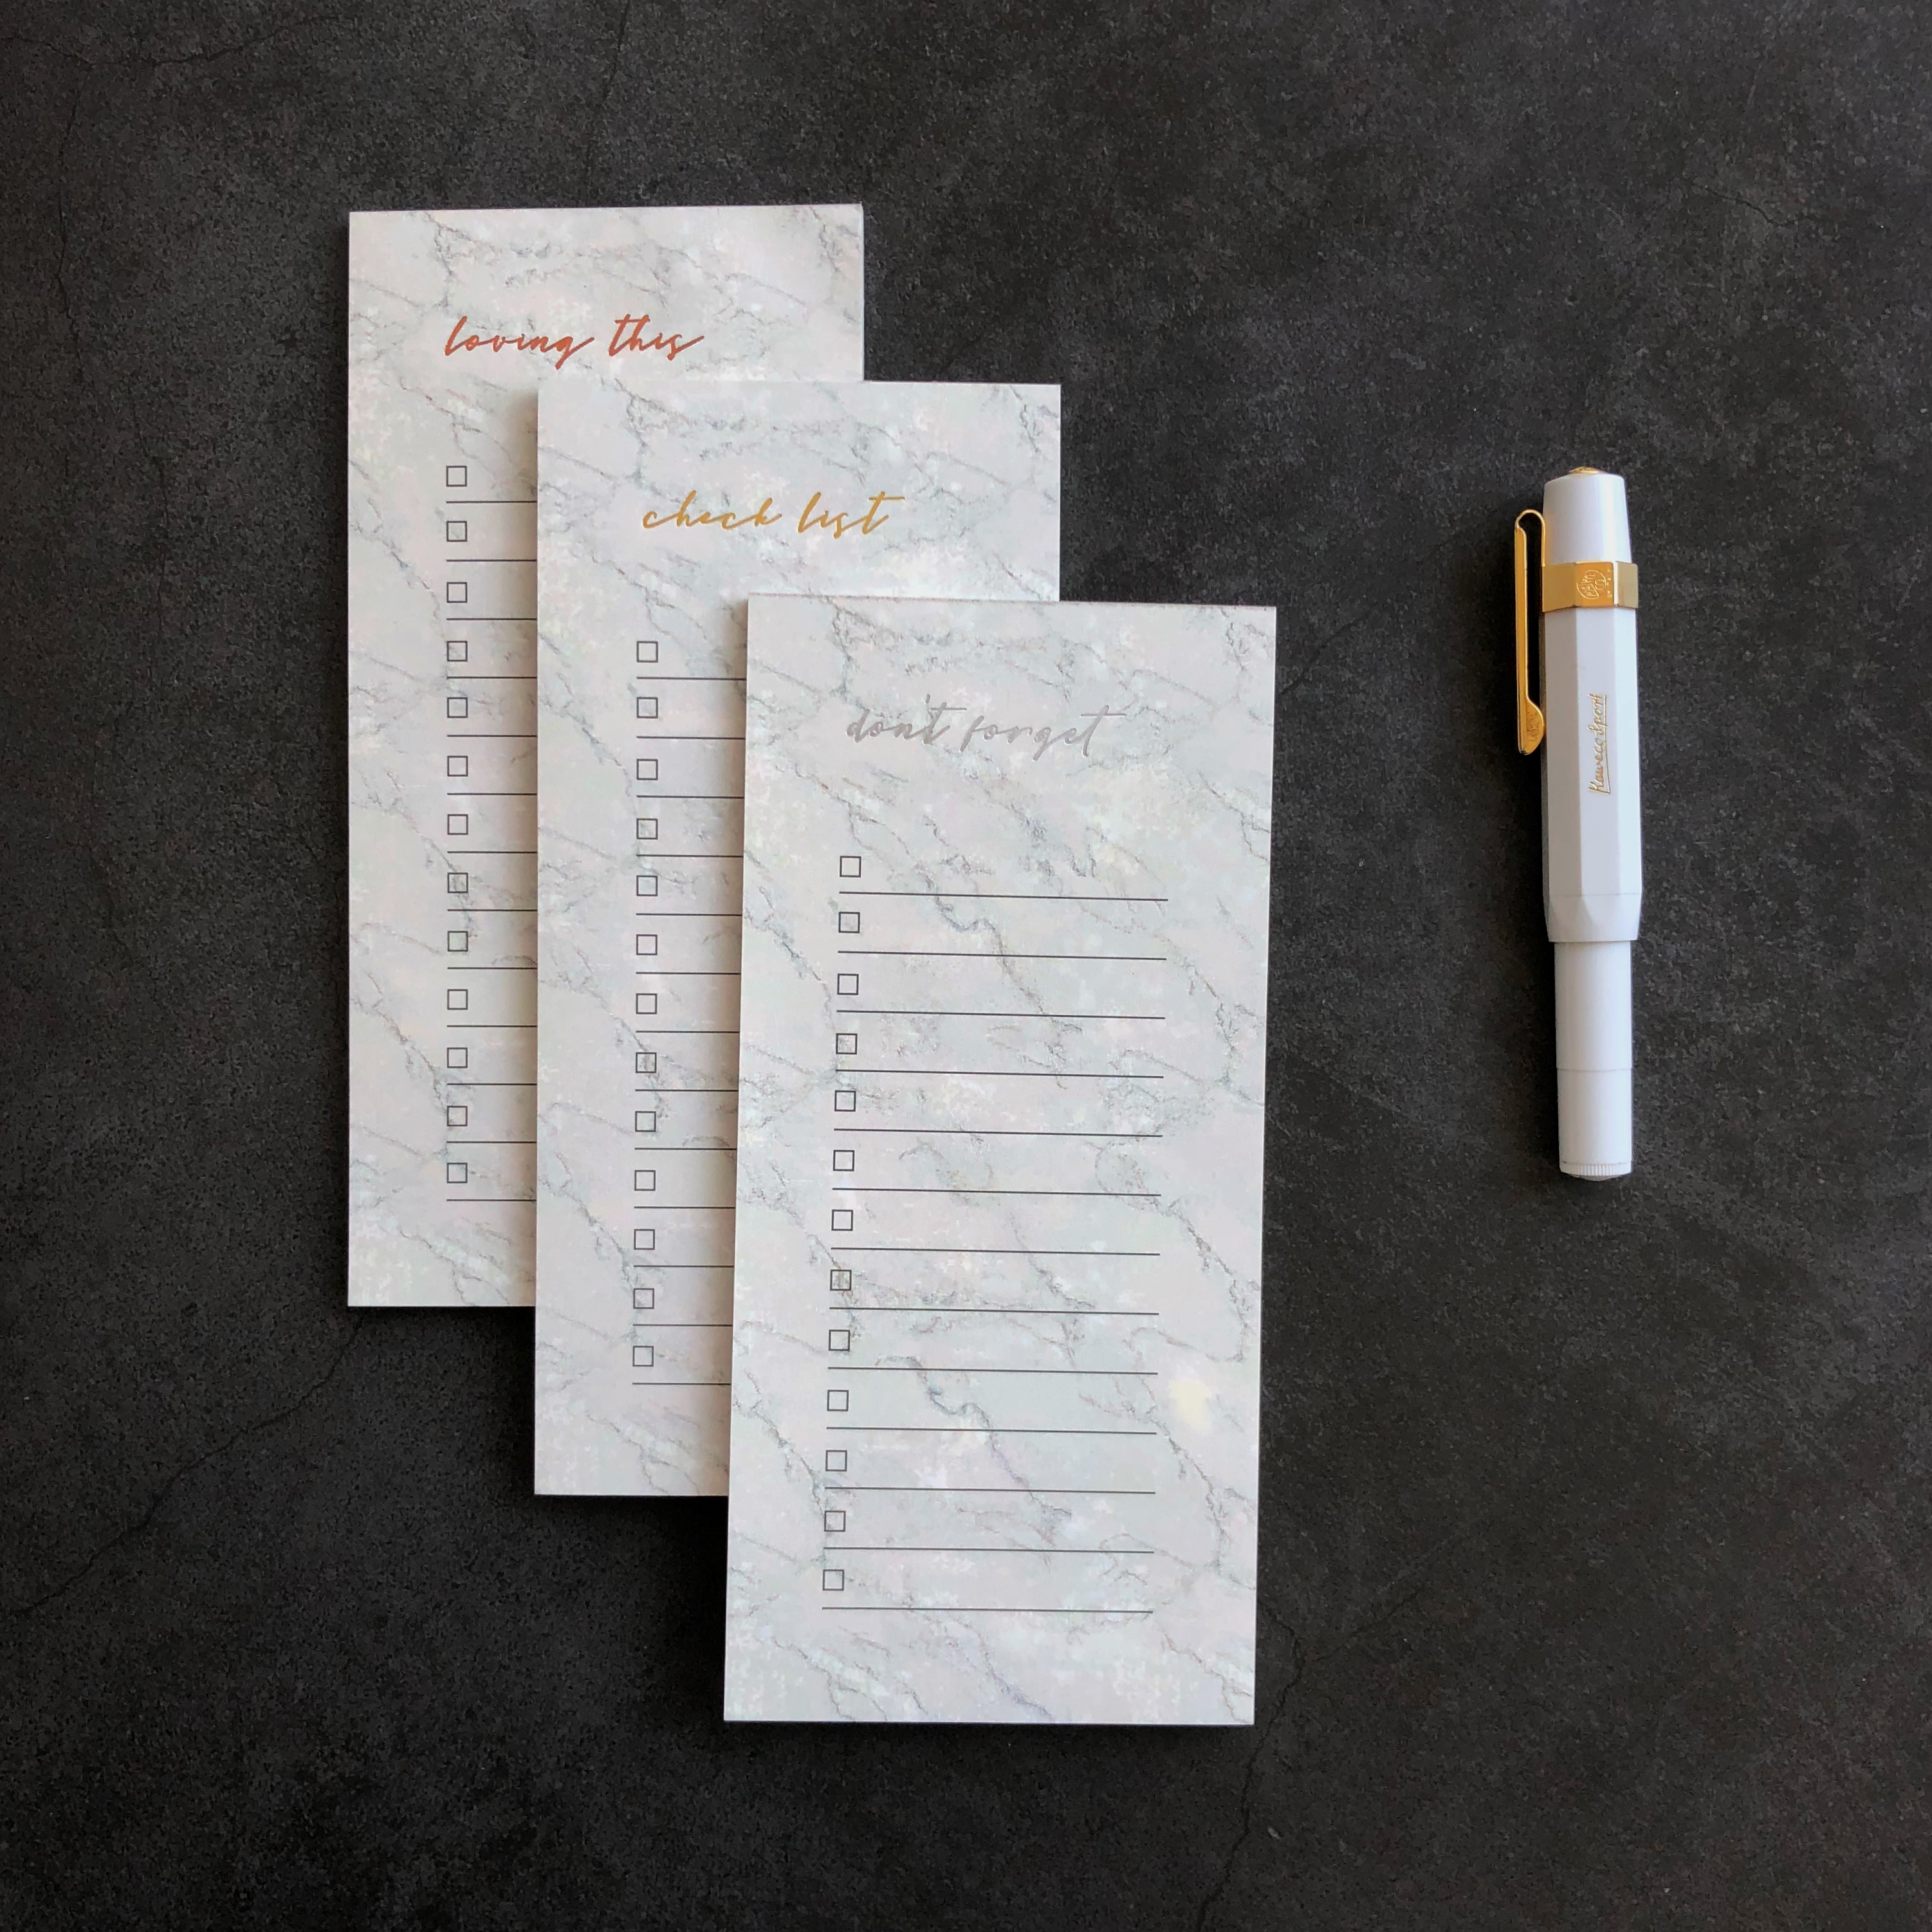 loving this
check list
don't forget
Kaweco Sport